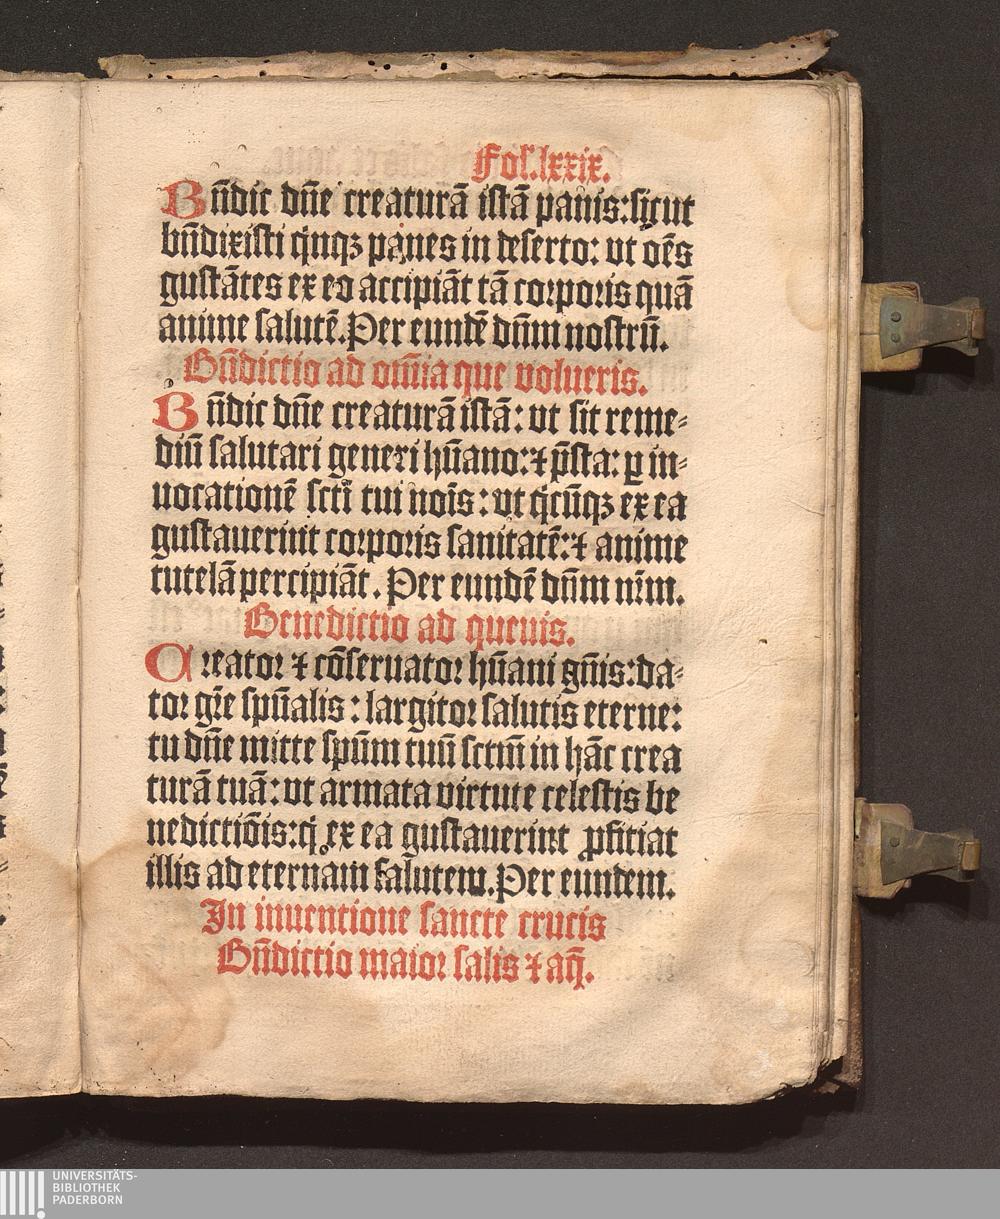 Fol. lxxix.
Bn̄dic dn̄e creaturā istā panis: sicut
bn̄dixisti q̈nqꝫ panes in deserto: vt oēs
gustātes ex eo accipiāt tā corporis quā
anime salutē. Per eundē dn̄m nostrū.
Bn̄dictio ad om̄ia que volueris.
Bn̄dic dn̄e creaturā istā: vt sit reme⸗
diū salutari generi hūano: ⁊ p̄sta: ꝑ in⸗
uocationē sctī tui noīs: vt q̈cūqꝫ ex ea
gustauerint corporis sanitatē: ⁊ anime
tutelā percipiāt. Per eundē dn̄m nr̄m.
Benedictio ad queuis.
Creator ⁊ cōseruator hūani gn̄is: da⸗
tor gr̄e spūalis: largitor salutis eterne:
tu dn̄e mitte spūm tuū sctm̄ in hāc crea
turā tuā: vt armata virtute celestis be
nedictiōis: q̈ ex ea gustauerint ꝓficiat
illis ad eternam salutem. Per eundem.
In inuentione sancte crucis
Bn̄dictio maior salis ⁊ aq̄.
UNIVERSITÄTS-
BIBLIOTHEK
PADERBORN